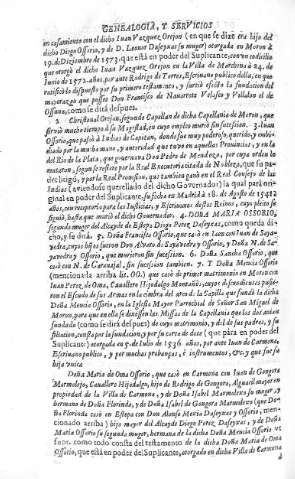 GENEALOGIA, Y SERVICIOS
en casamiento con el dicho Juan Vazquez Orejon (en que se dize era hijo del
dicho Diego Ossorio, y de D. Leonor Dasayas su muger) otorgada en Moron à
19. de Diziembre de 1573. que està en poder del Suplicante, con un codicilo
que otorgò el dicho Juan Vazquez Orejon en la Villa de Marchena à 24. de
Junio de 1572. años, por ante Rodrigo de Torres, Escrivano publico della, en que
ratificò lo dispuesto por su primero testamento, y surtiò efecto la fundacion del
mayorazgo que posseo Don Francisco de Navarrete Velasco y Vallano el de
Osuna, como se dirà despues.
2. Christoval Orejon, segundo Capellan de dicha Capellania de Moron, que
sirviò mucho tiempo à su Magestad, en cuyo empleo muriò sin succession. 3. Juan
Ossorio, que passò à Indias de Capitan, donde fue muy poderoso, querido, y embi-
diado por la mucha mano, y autoridad que tuvo en aquellas Provincias, y en la
del Rio de la Plata, que governava Don Pedro de Mendoza, por cuya orden lo
mataron, segun se refiere por la Real Executoria citada de Nobleza, que sin pa-
dres siguiò, y por la Real Provision, que tambien ganò en el Real Consejo de las
Indias (aviendose querellado del dicho Governador) la qual para ori-
ginal en poder del Suplicante, su fecha en Madrid à 18. de Agosto de 1542
años, con requisitoria para las Justicias, y Escrivanos destos Reinos, cuyo pleito se
siguiò, hasta que muriò el dicho Governador. 4. DOÑA MARIA OSSORIO,
segunda muger del Alcayde de Estepa Diego Perez Dasayas, como queda di-
cho, y se dirà. 5. Doña Francisca Ossorio, que casò en con Juan de Saya-
vedra, cuyos hijos fueron Don Alvaro de Sayavedra y Ossorio, y Doña N. de Sa-
yavedra y Ossorio, que murieron sin succession. 6. Doña Sancha Ossorio, que
casò con N. de Caravajal, sin succession tambien. 7. Y Doña Mencia Ossorio
(mencionada arriba lit. OO.) que casò de primer matrimonio en Moron con
Juan Perez, de Oma, Cavallero Hidalgo Montañès, cuyos descendientes passaron
con el Escudo de sus Armas en la cumbre del arco de la Capilla que fundò la dicha
Doña Mencia Ossorio, en la Iglesia Mayor Parrochial de Señor San Miguel de
Moron, para que en ella se dixessen las Missas de la Capellania que los dos avian
fundado (como se dirà despues) de cuyo matrimonio, y del de sus padres, y su
filiacion, consta por la fundacion, y por la carta de dote (que para en poder del
Suplicante) otorgada en 9. de Julio de 1536 años, por ante Juan de Carmona,
Escrivano publico, y por muchas probanças, è instrumentos, &c. y que fue su
hija unica
Doña Maria de Oma Ossorio, que casò en Carmona con Juan de Gongora
Marmolejo, Cavallero Hijodalgo, hijo de Rodrigo de Gongora, Alguacil mayor en
propiedad de la Villa de Carmona, y de Doña Isabel Marmolejo su muger, y
hermano de Doña Florinda, y de Doña Isabel de Gongora Marmolejo (que Do-
ña Florinda casò en Estepa con Don Alonso Maria Dasayas y Ossorio, men-
cionado arriba) hijo mayor del Alcayde Diego Perez, Dasayas, y de Doña
Maria Ossorio su segunda muger, hermana de la dicha Doña Mencia Ossorio su
suegra. como todo consta del testamento de la dicha Doña Maria de Oma
Ossorio, que està en poder del Suplicante, otorgado en dicha Villa de Carmona